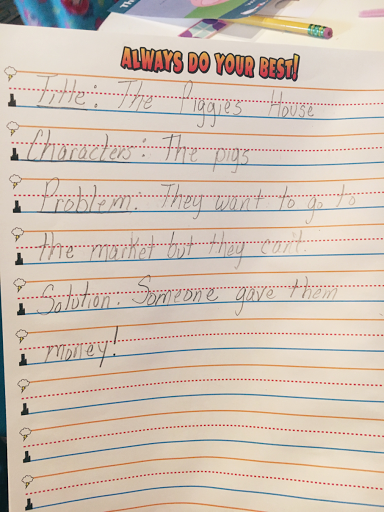 ALWAYS DO YOUR BEST!
Title: The Piggies House
Characters: The pigs
Problem: They want to go to
the market but they can't.
Solution. Someone gave them
money!